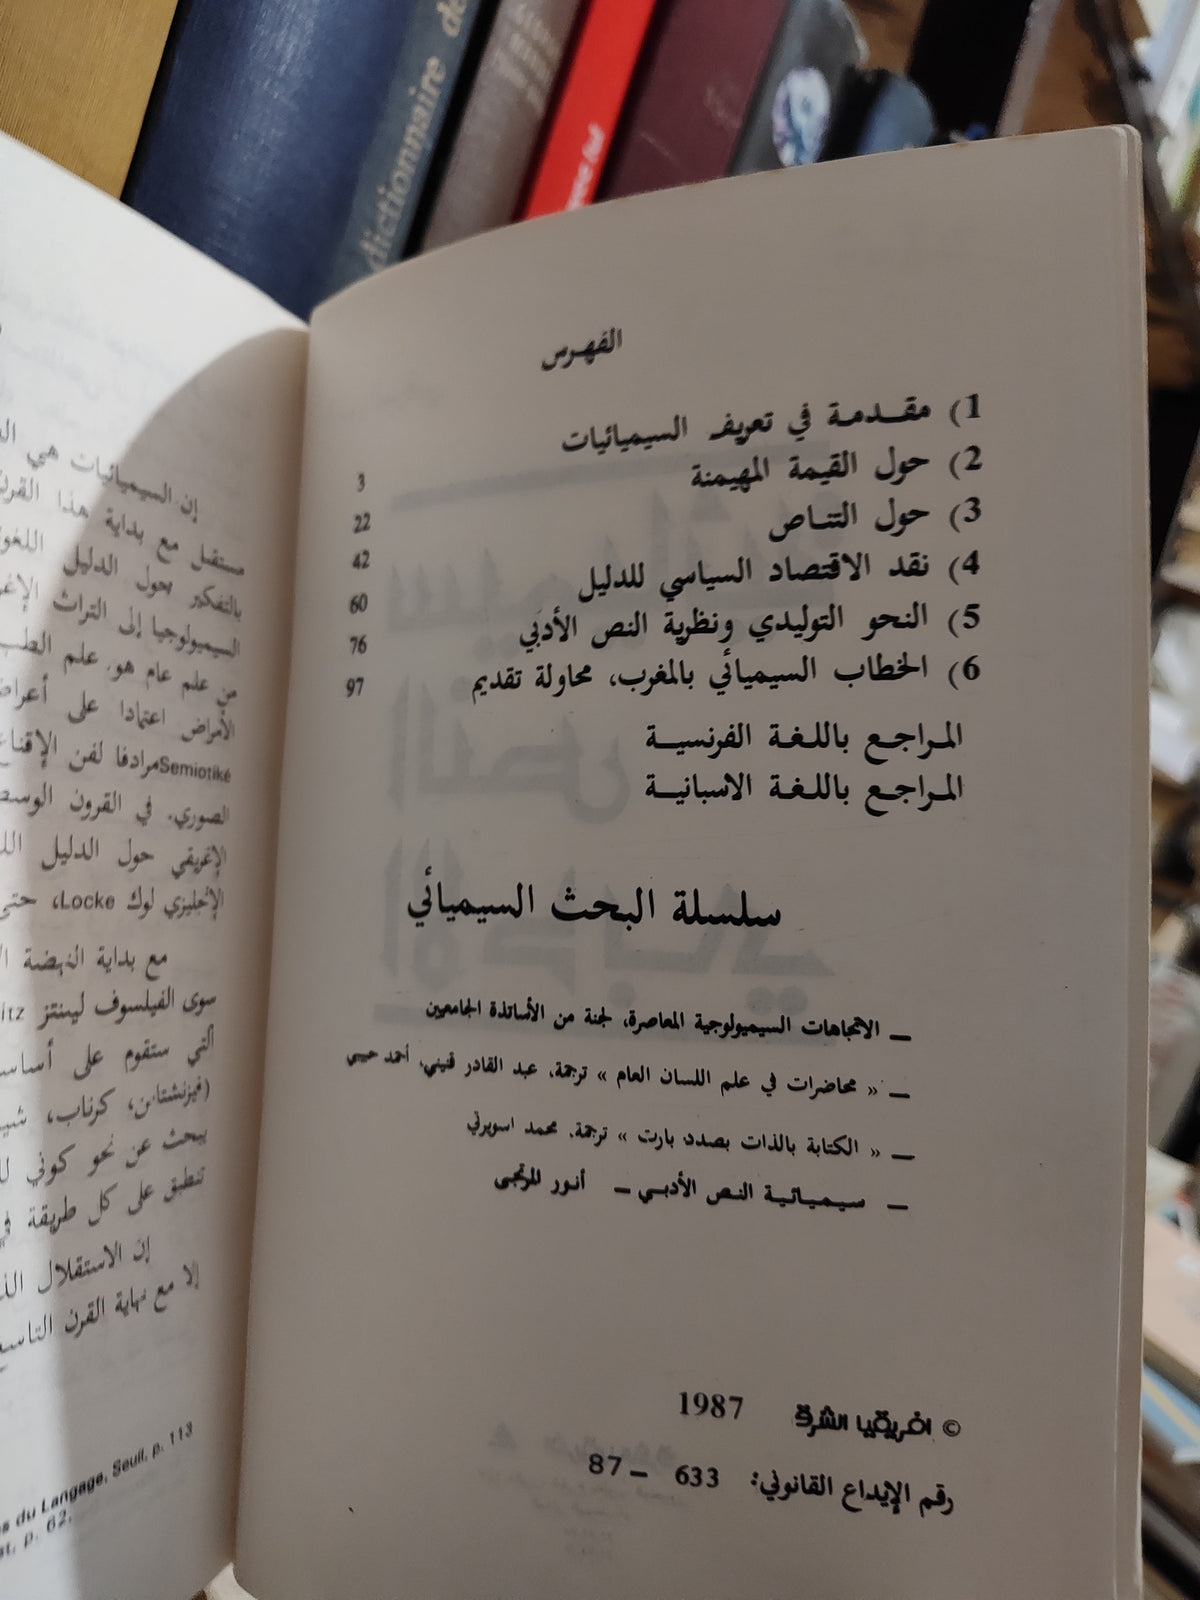 الفهـرس
1) مقـدمـة في تعريف السيميائيات 3
2) حول القيمة المهيمنة 22
3) حول التناص 42
4) نقد الاقتصاد السياسي للدليل 60
5) النحو التوليدي ونظرية النص الأدبي 76
6) الخطاب السيميائي بالمغرب، محاولة تقديم 97
المـراجـع باللـغـة الفرنسيــة
المـراجـع باللـغـة الاسبانيــة
سلسلة البحث السيميائي
ــ الاتجاهات السيميولوجية المعاصرة، لجنة من الأساتذة الجامعيين
ــ « محاضرات في علم اللسان العام » ترجمة. عبد القادر قنيني، أحمد حبيبي
ــ « الكتابة بالذات بصدد بارت » ترجمة. محمد اسويرتي
ــ سيـميـائـيـة النـص الأدبـي ــ أنـور المرتجى
© افريقيا الشرق 1987
رقم الإيداع القانوني: 633 – 87
إن السيميائيات هي
مستقل مع بداية هذا القرن
بالتفكير حول الدليل
السيميولوجيا إلى التراث
من علم عام هو. علم الطب
الأمراض اعتمادا على
Semiotiké مرادفا لفن
الصوري. في القرون
الإغريقي حول الدليل
الإنجليزي لوك Locke، حتى
مع بداية النهضة
سوى الفيلسوف ليبنتز
التي ستقوم على
(فيزنشتاين، كرناب،
يبحث عن نحو كوني
تنطبق على كل طريقة
إن الاستقلال
إلا مع نهاية القرن
du Langage, Seuil, p. 113
p. 62.
dictionnaire de